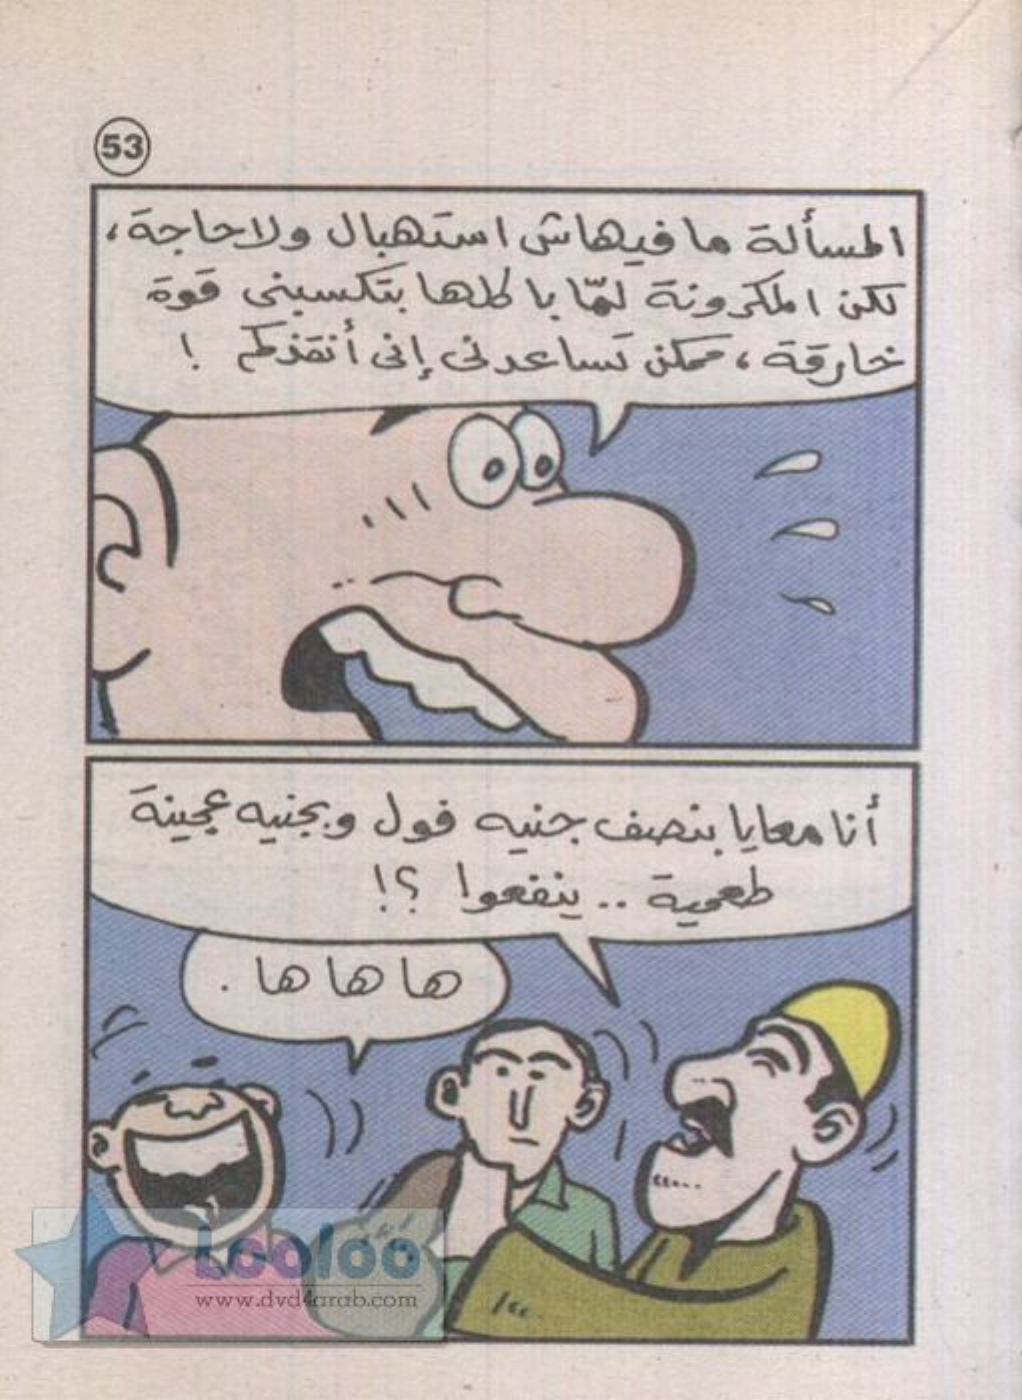 53
المسألة ما فيهاش استهبال ولا حاجة،
لكن المكرونة لمّا باكلها بتكسبنى قوة
خارقة، ممكن تساعدنى إنى أنقذكم !
أنا معايا بنصف جنيه فول وبجنيه عجينة
طعمية .. ينفعوا ؟!
ها ها ها .
Looloo
www.dvd4arab.com